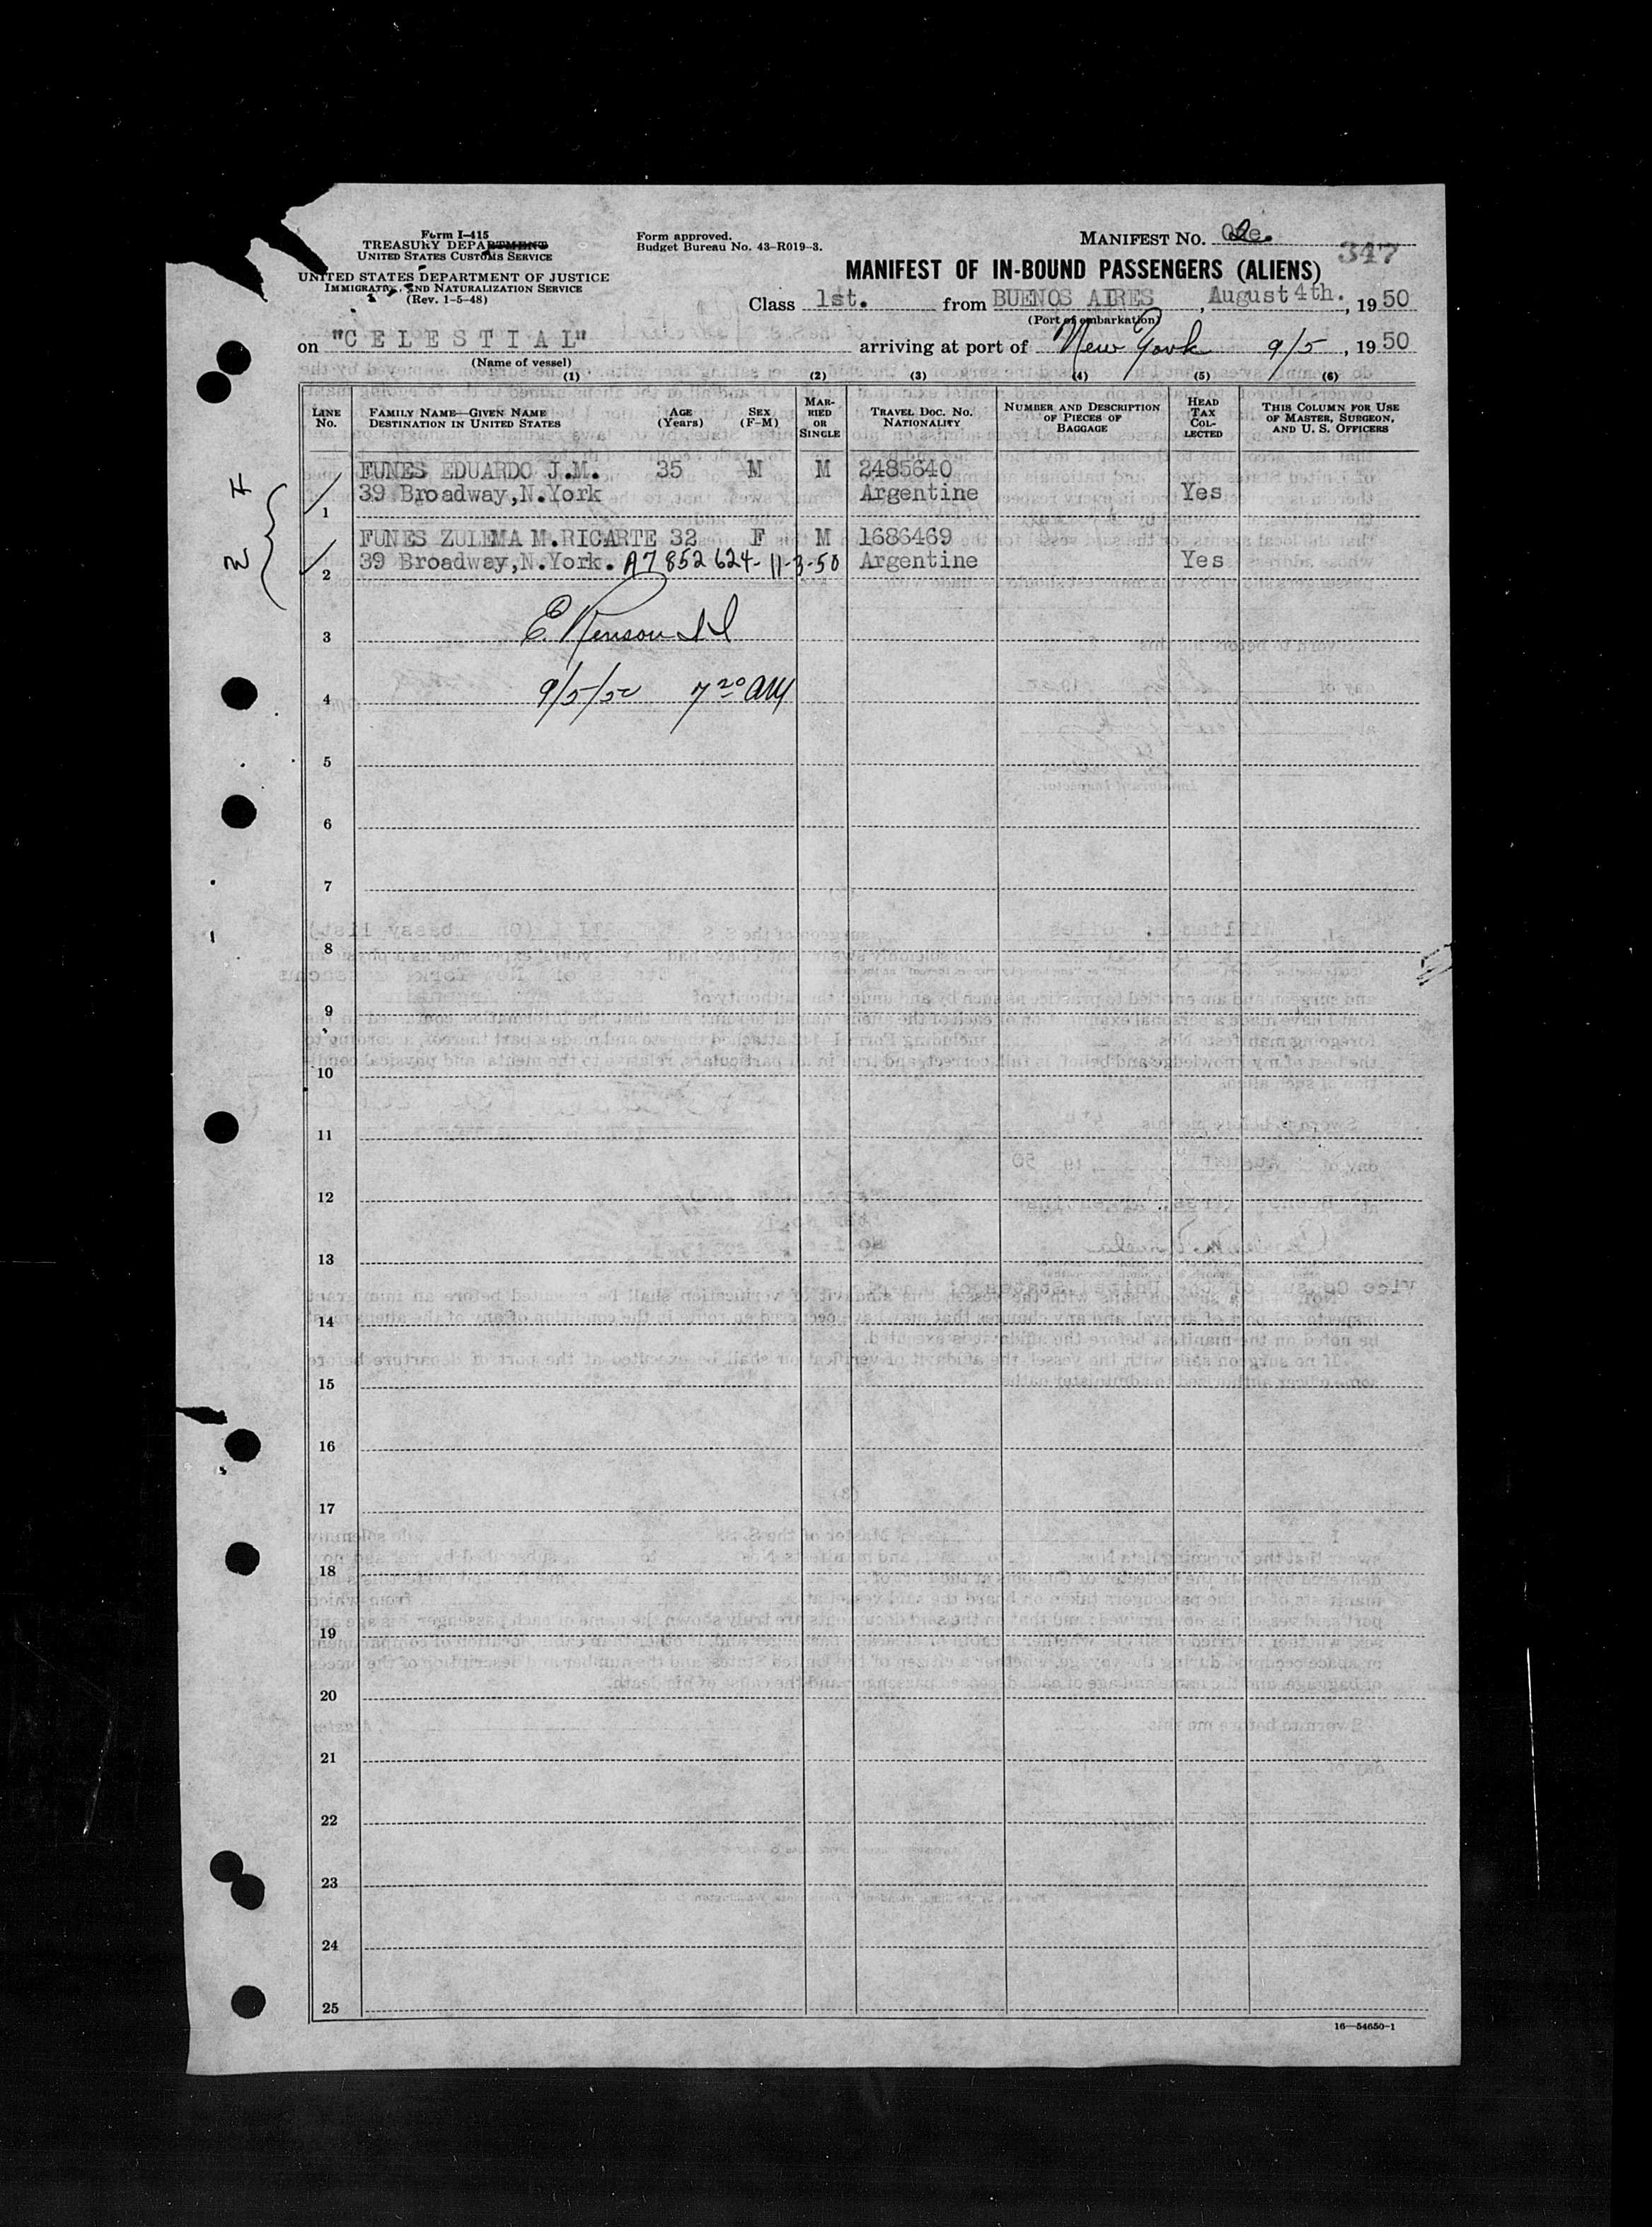 Form I-415
TREASURY DEPARTMENT
UNITED STATES CUSTOMS SERVICE
UNITED STATES DEPARTMENT OF JUSTICE
IMMIGRATION AND NATURALIZATION SERVICE
(Rev. 1-5-48)
Form approved.
Budget Bureau No. 43-R019-3.
MANIFEST NO.
347
MANIFEST OF IN-BOUND PASSENGERS (ALIENS)
Class 1st. from BUENOS AIRES, August 4th., 1950
(Port of embarkation)
on "CELESTIAL" arriving at port of New York 9/5, 1950
(Name of vessel)
(1) (2) (3) (4) (5) (6)
LINE NO. FAMILY NAME—GIVEN NAME DESTINATION IN UNITED STATES AGE (Years) SEX (F-M) MARRIED OR SINGLE TRAVEL DOC. NO. NATIONALITY NUMBER AND DESCRIPTION OF PIECES OF BAGGAGE HEAD TAX COLLECTED THIS COLUMN FOR USE OF MASTER, SURGEON, AND U. S. OFFICERS
FUNES EDUARDO J.M. 35 M M 2485640
1 39 Broadway,N.York Argentine Yes
FUNES ZULEMA M.RICARTE 32 F M 1686469
2 39 Broadway,N.York. A7 852 624- 11-3-50 Argentine Yes
3 E.
4 9/5/50 7 20 AM
5
6
7
8
9
10
11
12
13
14
15
16
17
18
19
20
21
22
23
24
25
16—54650-1